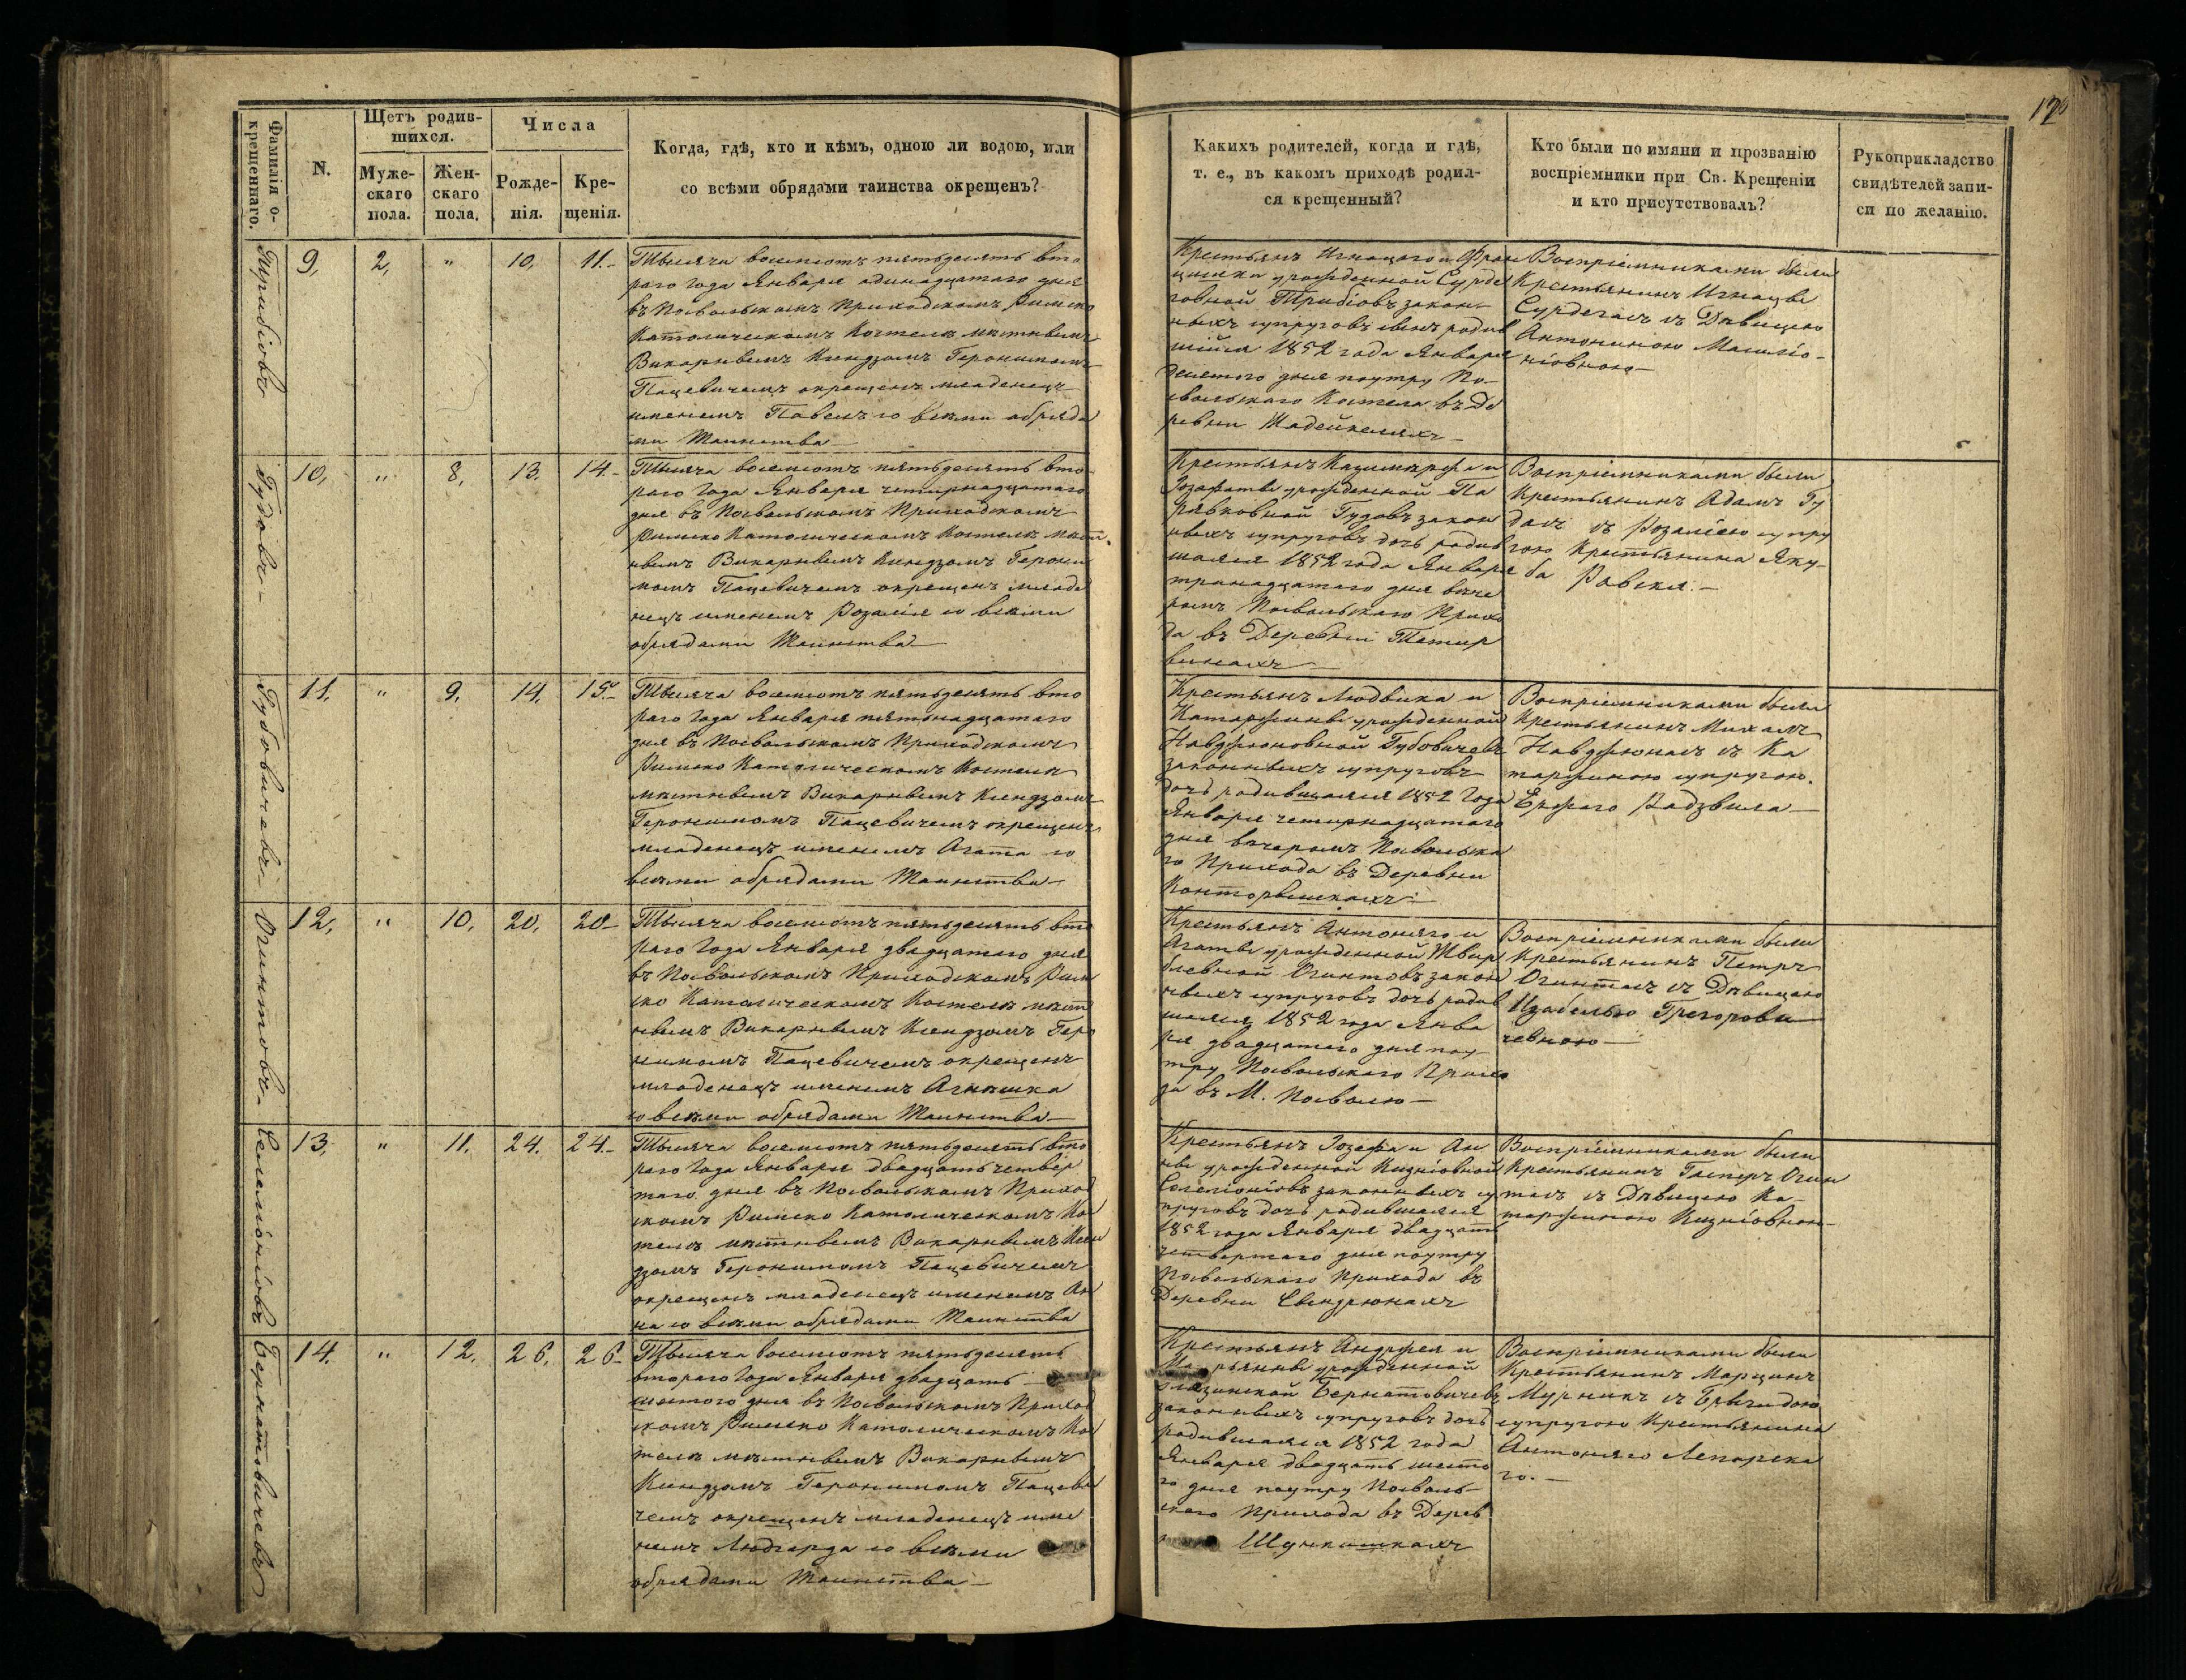 120
Фамилія о-
крещеннаго.
N.
Щетъ родив-
шихся.
Муже-
скаго
пола.
Жен-
скаго
пола.
Числа
Рожде-
нія.
Кре-
щенія.
Когда, гдѣ, кто и кѣмъ, одною ли водою, или
со всѣми обрядами таинства окрещенъ?
Какихъ родителей, когда и гдѣ,
т. е., въ какомъ приходѣ родил-
ся крещенный?
Кто были по имяни и прозванію
воспріемники при Св. Крещеніи
и кто присутствовалъ?
Рукоприкладство
свидѣтелей запи-
си по желанію.
Трибіовъ
9, 2, " 10, 11.-
Тысяча восемсотъ пятьдесятъ вто
раго года Января одинадцатаго дня
въ Посвольскомъ Приходскомъ Римско
Католическомъ Костелѣ мѣстнымъ
Викарнымъ Ксендзомъ Геронимомъ
Пацевичемъ окрещенъ младенецъ
именемъ Павелъ со всѣми обряда
ми Таинства —
Крестьянъ Игнацого и Фран
цишки урожденной Сурде
говной Трибіовъ закон-
ныхъ супруговъ сынъ родив
шійся 1852 года Января
десятого дня поутру По-
свольскаго Костела въ Де
ревни Жадейкеляхъ —
Воспріемниками были
Крестьянинъ Игнацы
Сурдегасъ съ Дѣвицею
Антониною Масліо-
ніовною —
Гудовъ -
10, " 8, 13. 14.-
Тысяча восемсотъ пятьдесятъ вто
раго Года Января четырнадцатаго
дня въ Посвольскомъ Приходскомъ
Римско Католическомъ Костелѣ мѣст
нымъ Викарнымъ Ксендзомъ Герони
момъ Пацевичемъ окрещенъ младе
нецъ именемъ Розалія со всѣми
обрядами Таинства —
Крестьянъ Казимѣржа и
Іозафаты урожденной Па
ровной Гудовъ закон
ныхъ супруговъ дочь родив
шаяся 1852 года Января
тринадцатаго дня вече
ромъ Посвольскаго Прихо
да въ Деревни Петир
винахъ —
Воспріемниками были
Крестьянинъ Адамъ Гу
дасъ съ Розаліею супру
гою Крестьянина Яку-
ба Равска. —
Губовичевъ -
11. " 9. 14. 15.-
Тысяча восемсотъ пятьдесятъ вто
раго Года Января пятьнадцатаго
дня въ Посвольскомъ Приходскомъ
Римско Католическомъ Костелѣ
мѣстнымъ Викарнымъ Ксендзомъ
Геронимомъ Пацевичемъ окрещенъ
младенецъ именемъ Агата со
всѣми обрядами Таинства —
Крестьянъ Людвика и
Катаржины урожденной
Навджюновной Губовичевъ
законныхъ супруговъ
дочь родившаяся 1852 Года
Января четырнадцатаго
дня вечеромъ Посвольска
го Прихода въ Деревни
Конторвишкахъ —
Воспріемниками были
Крестьянинъ Михалъ
Навджюнасъ съ Ка
таржиною супругою.
Ержего Радзвила —
Огинтовъ -
12, " 10, 20, 20-
Тысяча восемсотъ пятьдесятъ вто
раго Года Января двадцатаго дня
въ Посвольскомъ Приходскомъ Рим
ско Католическомъ Костелѣ мѣст
нымъ Викарнымъ Ксендзомъ Геро
нимомъ Пацевичемъ окрещенъ
младенецъ именемъ Агнѣшка
со всѣми обрядами Таинства —
Крестьянъ Антоняго и
Агаты урожденной Жвир
блевной Огинтовъ закон
ныхъ супруговъ дочь родив
шаяся 1852 года Янва
ря двадцатаго дня поу-
тру Посвольскаго Прихо
да въ М. Посволю —
Воспріемниками были
Крестьянинъ Петръ
Огинтасъ съ Дѣвицею
Изабелью Грегорови
чевною —
Селеліоніовъ
13, " 11. 24. 24.-
Тысяча восемсотъ пятьдесятъ вто
раго Года Января двадцать четвер
таго дня въ Посвольскомъ Приход
скомъ Римско Католическомъ Кос
телѣ мѣстнымъ Викарнымъ Ксен
дзомъ Геронимомъ Пацевичемъ
окрещенъ младенецъ именемъ Ан
на со всѣми обрядами Таинства
Крестьянъ Іозефа и Ан
ны урожденной Кизніовной
Селеліоніовъ законныхъ су
пруговъ дочь родившаяся
1852 года Января двадцать
четвертаго дня поутру
Посвольскаго Прихода въ
Деревни Свидзюнахъ
Воспріемниками были
Крестьянинъ Гасперъ Огин
тасъ съ Дѣвицею Ка-
таржиною Кизніовною —
Бернатовичевъ
14. " 12, 26, 26-
Тысяча восемсотъ пятьдесятъ
втораго Года Января двадцать
шестого дня въ Посвольскомъ Приход
скомъ Римско Католическомъ Кос
телѣ мѣстнымъ Викарнымъ
Ксендзомъ Геронимомъ Пацеви
чемъ окрещенъ младенецъ име
немъ Людгарда со всѣми
обрядами Таинства —
Крестьянъ Андржея и
Марьянны урожденной
Бернатовичевъ
законныхъ супруговъ дочь
родившаяся 1852 года
Января двадцать шесто
го дня поутру Посволь-
скаго Прихода въ Дерев
Шункишкахъ
Воспріемниками были
Крестьянинъ Марцинъ
Мурникъ съ Бригидою
супругою Крестьянина
Антоняго Лепарска
го. —